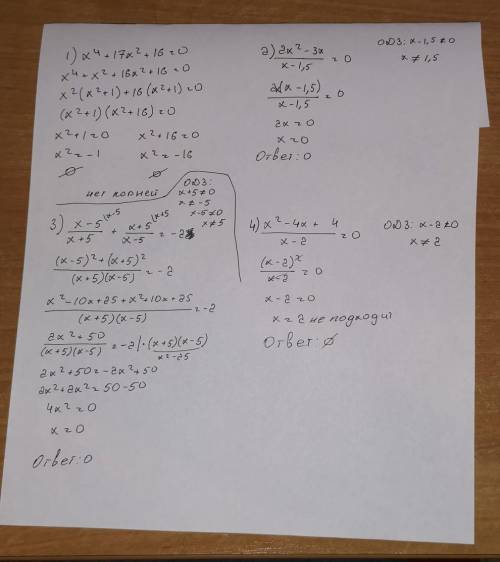 1) x⁴ + 17x² + 16 = 0
x⁴ + x² + 16x² + 16 = 0
x²(x²+1) + 16(x²+1) = 0
(x²+1)(x²+16) = 0
x²+1=0 x²+16=0
x²=-1 x²=-16
∅ ∅
нет корней
2) 2x²-3x / x-1,5 = 0
ОДЗ: x-1,5≠0
x≠1,5
2x(x-1,5) / x-1,5 = 0
2x=0
x=0
Ответ: 0
ОДЗ:
x+5≠0
x≠-5
x-5≠0
x≠5
3) x-5 / x+5 |x-5 + x+5 / x-5 |x+5 = -2
(x-5)²+(x+5)² / (x+5)(x-5) = -2
x²-10x+25+x²+10x+25 / (x+5)(x-5) = -2
2x²+50 / (x+5)(x-5) = -2 | ·(x+5)(x-5)
x²-25
2x²+50=-2x²+50
2x²+2x²=50-50
4x²=0
x=0
Ответ: 0
4) x²-4x+4 / x-2 = 0
ОДЗ: x-2≠0
x≠2
(x-2)² / x-2 = 0
x-2=0
x=2 не подходит
Ответ: ∅